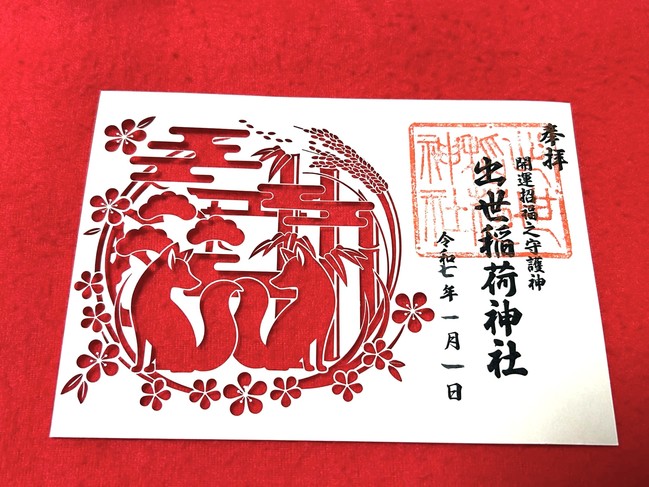 奉拝
開運招福之守護神
出世稲荷神社
令和七年一月一日